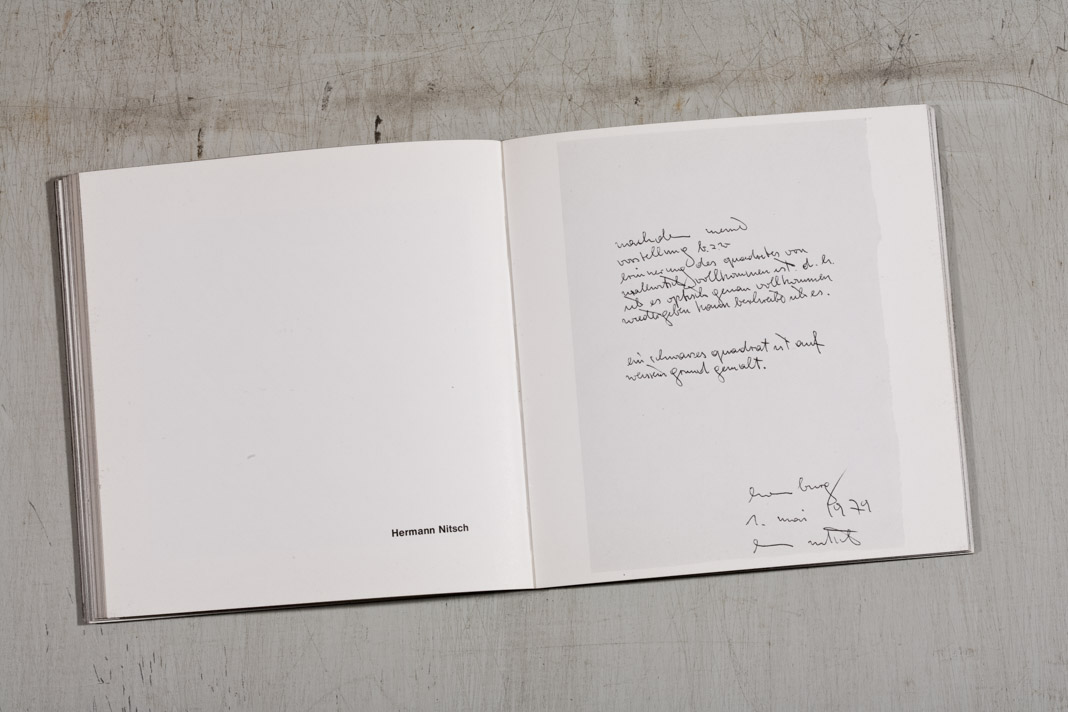 Hermann Nitsch
nachdem meine
vorstellung bzw
erinnerung des quadrates von
malewitsch vollkommen ist. d.h.
ich es optisch genau vollkommen
wiedergeben kann beschreibe ich es.
ein schwarzes quadrat ist auf
weissem grund gemalt.
1. mai 1979
nitsch